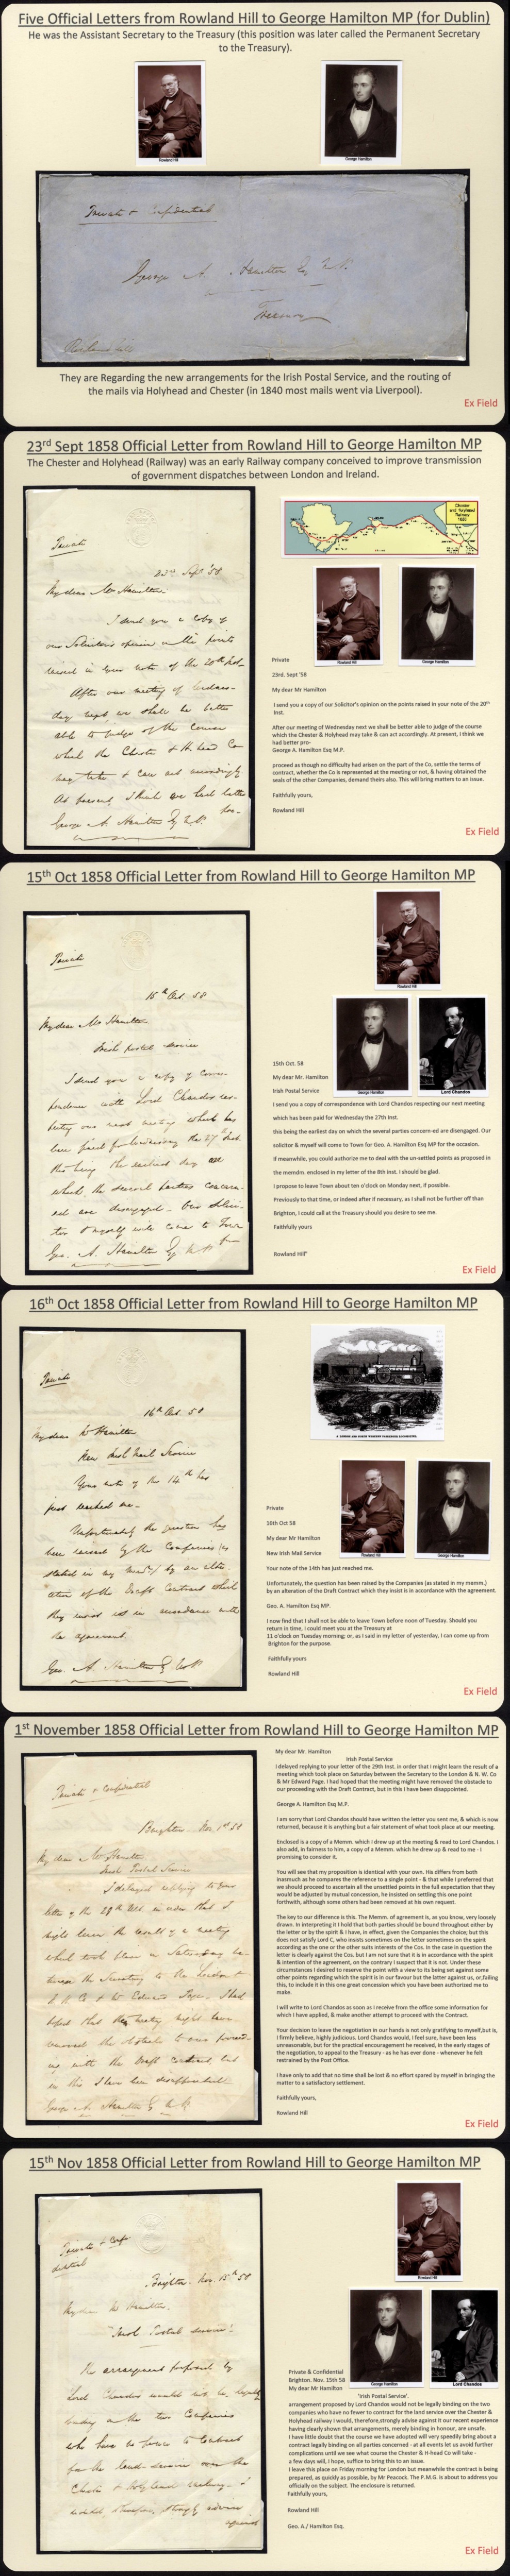 Five Official Letters from Rowland Hill to George Hamilton MP (for Dublin)
He was the Assistant Secretary to the Treasury (this position was later called the Permanent Secretary
to the Treasury).
Rowland Hill
George Hamilton
Private & Confidential
George A. Hamilton Esq M.P.
Treasury
Rowland Hill
They are Regarding the new arrangements for the Irish Postal Service, and the routing of
the mails via Holyhead and Chester (in 1840 most mails went via Liverpool).
Ex Field
23rd Sept 1858 Official Letter from Rowland Hill to George Hamilton MP
The Chester and Holyhead (Railway) was an early Railway company conceived to improve transmission
of government dispatches between London and Ireland.
Private
23rd Sept '58
My dear Mr Hamilton
I send you a copy of
our Solicitor's opinion on the points
raised in your note of the 20th Inst.
After our meeting of Wednes-
day next we shall be better
able to judge of the course
which the Chester & H.head Co
may take & can act accordingly
At present, I think we had better
pro-
George A. Hamilton Esq M.P.
Chester
and Holyhead
Railway
1850
Rowland Hill
George Hamilton
Private
23rd. Sept '58
My dear Mr Hamilton
I send you a copy of our Solicitor's opinion on the points raised in your note of the 20th
Inst.
After our meeting of Wednesday next we shall be better able to judge of the course
which the Chester & Holyhead may take & can act accordingly. At present, I think we
had better pro-
George A. Hamilton Esq M.P.
proceed as though no difficulty had arisen on the part of the Co, settle the terms of
contract, whether the Co is represented at the meeting or not, & having obtained the
seals of the other Companies, demand theirs also. This will bring matters to an issue.
Faithfully yours,
Rowland Hill
Ex Field
15th Oct 1858 Official Letter from Rowland Hill to George Hamilton MP
Private
15th Oct. 58
My dear Mr Hamilton
Irish postal service
I send you a copy of corres-
pondence with Lord Chandos res-
pecting our next meeting which has
been fixed for Wednesday the 27 Inst.
this being the earliest day on
which the several parties concern-
ed are disengaged. Our Solici-
tor & myself will come to Town
for
Geo. A. Hamilton Esq M P
Rowland Hill
George Hamilton
Lord Chandos
15th Oct. 58
My dear Mr. Hamilton
Irish Postal Service
I send you a copy of correspondence with Lord Chandos respecting our next meeting
which has been paid for Wednesday the 27th Inst.
this being the earliest day on which the several parties concern-ed are disengaged. Our
solicitor & myself will come to Town for Geo. A. Hamilton Esq MP for the occasion.
If meanwhile, you could authorize me to deal with the un-settled points as proposed in
the memdm. enclosed in my letter of the 8th inst. I should be glad.
I propose to leave Town about ten o'clock on Monday next, if possible.
Previously to that time, or indeed after if necessary, as I shall not be further off than
Brighton, I could call at the Treasury should you desire to see me.
Faithfully yours
Rowland Hill"
Ex Field
16th Oct 1858 Official Letter from Rowland Hill to George Hamilton MP
Private
16th Oct. 58
My dear Mr Hamilton
New Irish Mail Service
Your note of the 14th has
just reached me.
Unfortunately the question has
been raised by the Companies (as
stated in my memm) by an alter-
ation of the Draft Contract which
they insist is in accordance with
the agreement.
Geo. A. Hamilton Esq M.P.
A LONDON AND NORTH WESTERN PASSENGER LOCOMOTIVE.
Rowland Hill
George Hamilton
Private
16th Oct 58
My dear Mr Hamilton
New Irish Mail Service
Your note of the 14th has just reached me.
Unfortunately, the question has been raised by the Companies (as stated in my memm.)
by an alteration of the Draft Contract which they insist is in accordance with the agreement.
Geo. A. Hamilton Esq MP.
I now find that I shall not be able to leave Town before noon of Tuesday. Should you
return in time, I could meet you at the Treasury at
11 o'clock on Tuesday morning; or, as I said in my letter of yesterday, I can come up from
Brighton for the purpose.
Faithfully yours
Rowland Hill
Ex Field
1st November 1858 Official Letter from Rowland Hill to George Hamilton MP
Private & Confidential
Brighton Nov. 1st 58
My dear Mr Hamilton
Irish Postal Service
I delayed replying to your
letter of the 29th Inst. in order that I
might learn the result of a meeting
which took place on Saturday be-
tween the Secretary to the London &
N. W. Co & Mr Edward Page. I had
hoped that the meeting might have
removed the obstacle to our proceed-
ing with the Draft contract, but
in this I have been disappointed.
George A. Hamilton Esq M.P.
My dear Mr. Hamilton
Irish Postal Service
I delayed replying to your letter of the 29th Inst. in order that I might learn the result of a
meeting which took place on Saturday between the Secretary to the London & N. W. Co
& Mr Edward Page. I had hoped that the meeting might have removed the obstacle to
our proceeding with the Draft Contract, but in this I have been disappointed.
George A. Hamilton Esq M.P.
I am sorry that Lord Chandos should have written the letter you sent me, & which is now
returned, because it is anything but a fair statement of what took place at our meeting.
Enclosed is a copy of a Memm. which I drew up at the meeting & read to Lord Chandos. I
also add, in fairness to him, a copy of a Memm. which he drew up & read to me - I
promising to consider it.
You will see that my proposition is identical with your own. His differs from both
inasmuch as he compares the reference to a single point - & that while I preferred that
we should proceed to ascertain all the unsettled points in the full expectation that they
would be adjusted by mutual concession, he insisted on settling this one point
forthwith, although some others had been removed at his own request.
The key to our difference is this. The Memm. of agreement is, as you know, very loosely
drawn. In interpreting it I hold that both parties should be bound throughout either by
the letter or by the spirit & I have, in effect, given the Companies the choice; but this
does not satisfy Lord C, who insists sometimes on the letter sometimes on the spirit
according as the one or the other suits interests of the Cos. In the case in question the
letter is clearly against the Cos. but I am not sure that it is in accordance with the spirit
& intention of the agreement, on the contrary I suspect that it is not. Under these
circumstances I desired to reserve the point with a view to its being set against some
other points regarding which the spirit is in our favour but the latter against us, or,failing
this, to include it in this one great concession which you have been authorized me to
make.
I will write to Lord Chandos as soon as I receive from the office some information for
which I have applied, & make another attempt to proceed with the Contract.
Your decision to leave the negotiation in our hands is not only gratifying to myself,but is,
I firmly believe, highly judicious. Lord Chandos would, I feel sure, have been less
unreasonable, but for the practical encouragement he received, in the early stages of
the negotiation, to appeal to the Treasury - as he has ever done - whenever he felt
restrained by the Post Office.
I have only to add that no time shall be lost & no effort spared by myself in bringing the
matter to a satisfactory settlement.
Faithfully yours,
Rowland Hill
Ex Field
15th Nov 1858 Official Letter from Rowland Hill to George Hamilton MP
Private & Conf-
idential
Brighton. Nov. 15th 58
My dear Mr Hamilton,
"Irish Postal Service".
The arrangement proposed by
Lord Chandos would not be legally
binding on the two Companies
who have to Contract
for the land service over the
Chester & Holyhead railway. I
would, therefore, strongly advise
against
Rowland Hill
George Hamilton
Lord Chandos
Private & Confidential
Brighton. Nov. 15th 58
My dear Mr Hamilton
'Irish Postal Service'.
arrangement proposed by Lord Chandos would not be legally binding on the two
companies who have no fewer to contract for the land service over the Chester &
Holyhead railway I would, therefore,strongly advise against it our recent experience
having clearly shown that arrangements, merely binding in honour, are unsafe.
I have little doubt that the course we have adopted will very speedily bring about a
contract legally binding on all parties concerned - at all events let us avoid further
complications until we see what course the Chester & H-head Co will take -
a few days will, I hope, suffice to bring this to an issue.
I leave this place on Friday morning for London but meanwhile the contract is being
prepared, as quickly as possible, by Mr Peacock. The P.M.G. is about to address you
officially on the subject. The enclosure is returned.
Faithfully yours,
Rowland Hill
Geo. A./ Hamilton Esq.
Ex Field